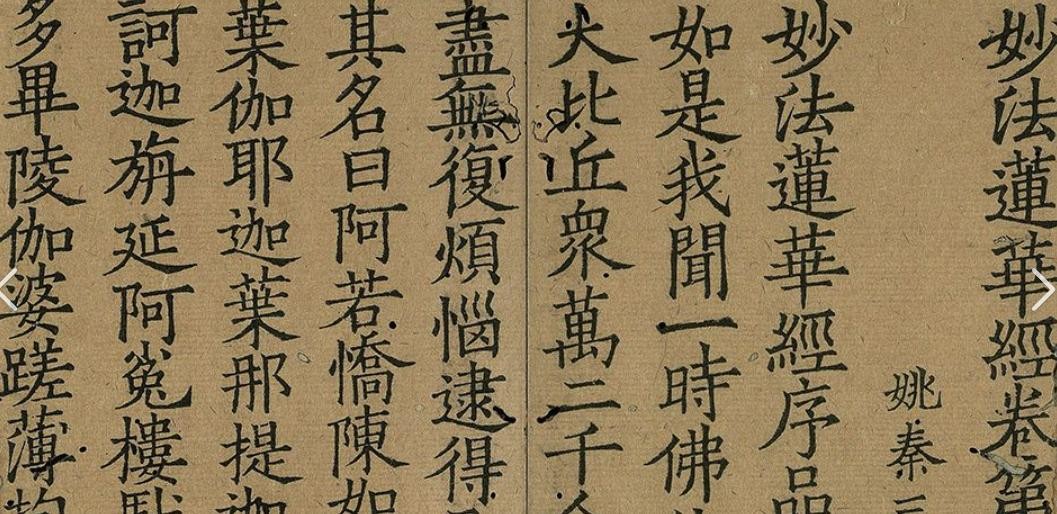 妙法蓮華經卷第
姚秦三
妙法蓮華經序品
如是我聞一時佛
大比丘衆萬二千人
盡無復煩惱逮得
其名曰阿若憍陳如
葉伽耶迦葉那提迦
訶迦旃延阿㝹樓馱
多畢陵伽婆蹉薄拘